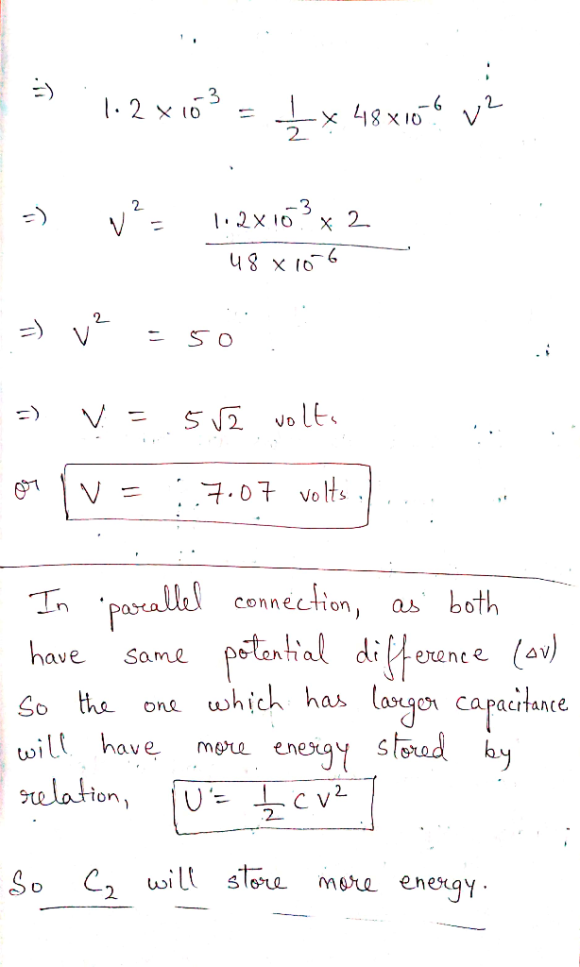 =) 1.2 × 10⁻³ = 1/2 × 48×10⁻⁶ V²
=) V² = 1.2×10⁻³ × 2 / 48 × 10⁻⁶
=) V² = 50
=) V = 5√2 volts
or V = 7.07 volts.
In parallel connection, as both
have same potential difference (ΔV)
So the one which has larger capacitance
will have more energy stored by
relation, U = 1/2 CV²
So C₂ will store more energy.